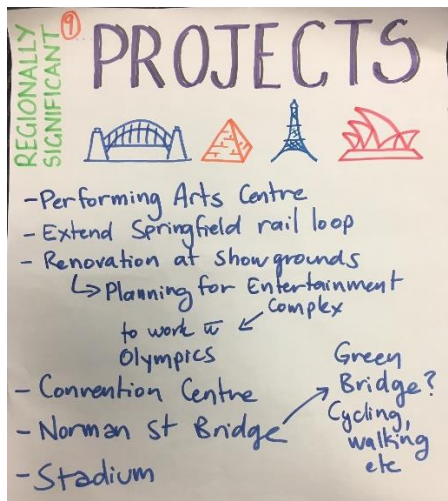 REGIONALLY
SIGNIFICANT
9
PROJECTS
- Performing Arts Centre
- Extend Springfield rail loop
- Renovation at Showgrounds
↳ Planning for Entertainment
Complex
to work w̅
Olympics
- Convention Centre
- Norman St Bridge
Green
Bridge?
Cycling,
walking
etc
- Stadium